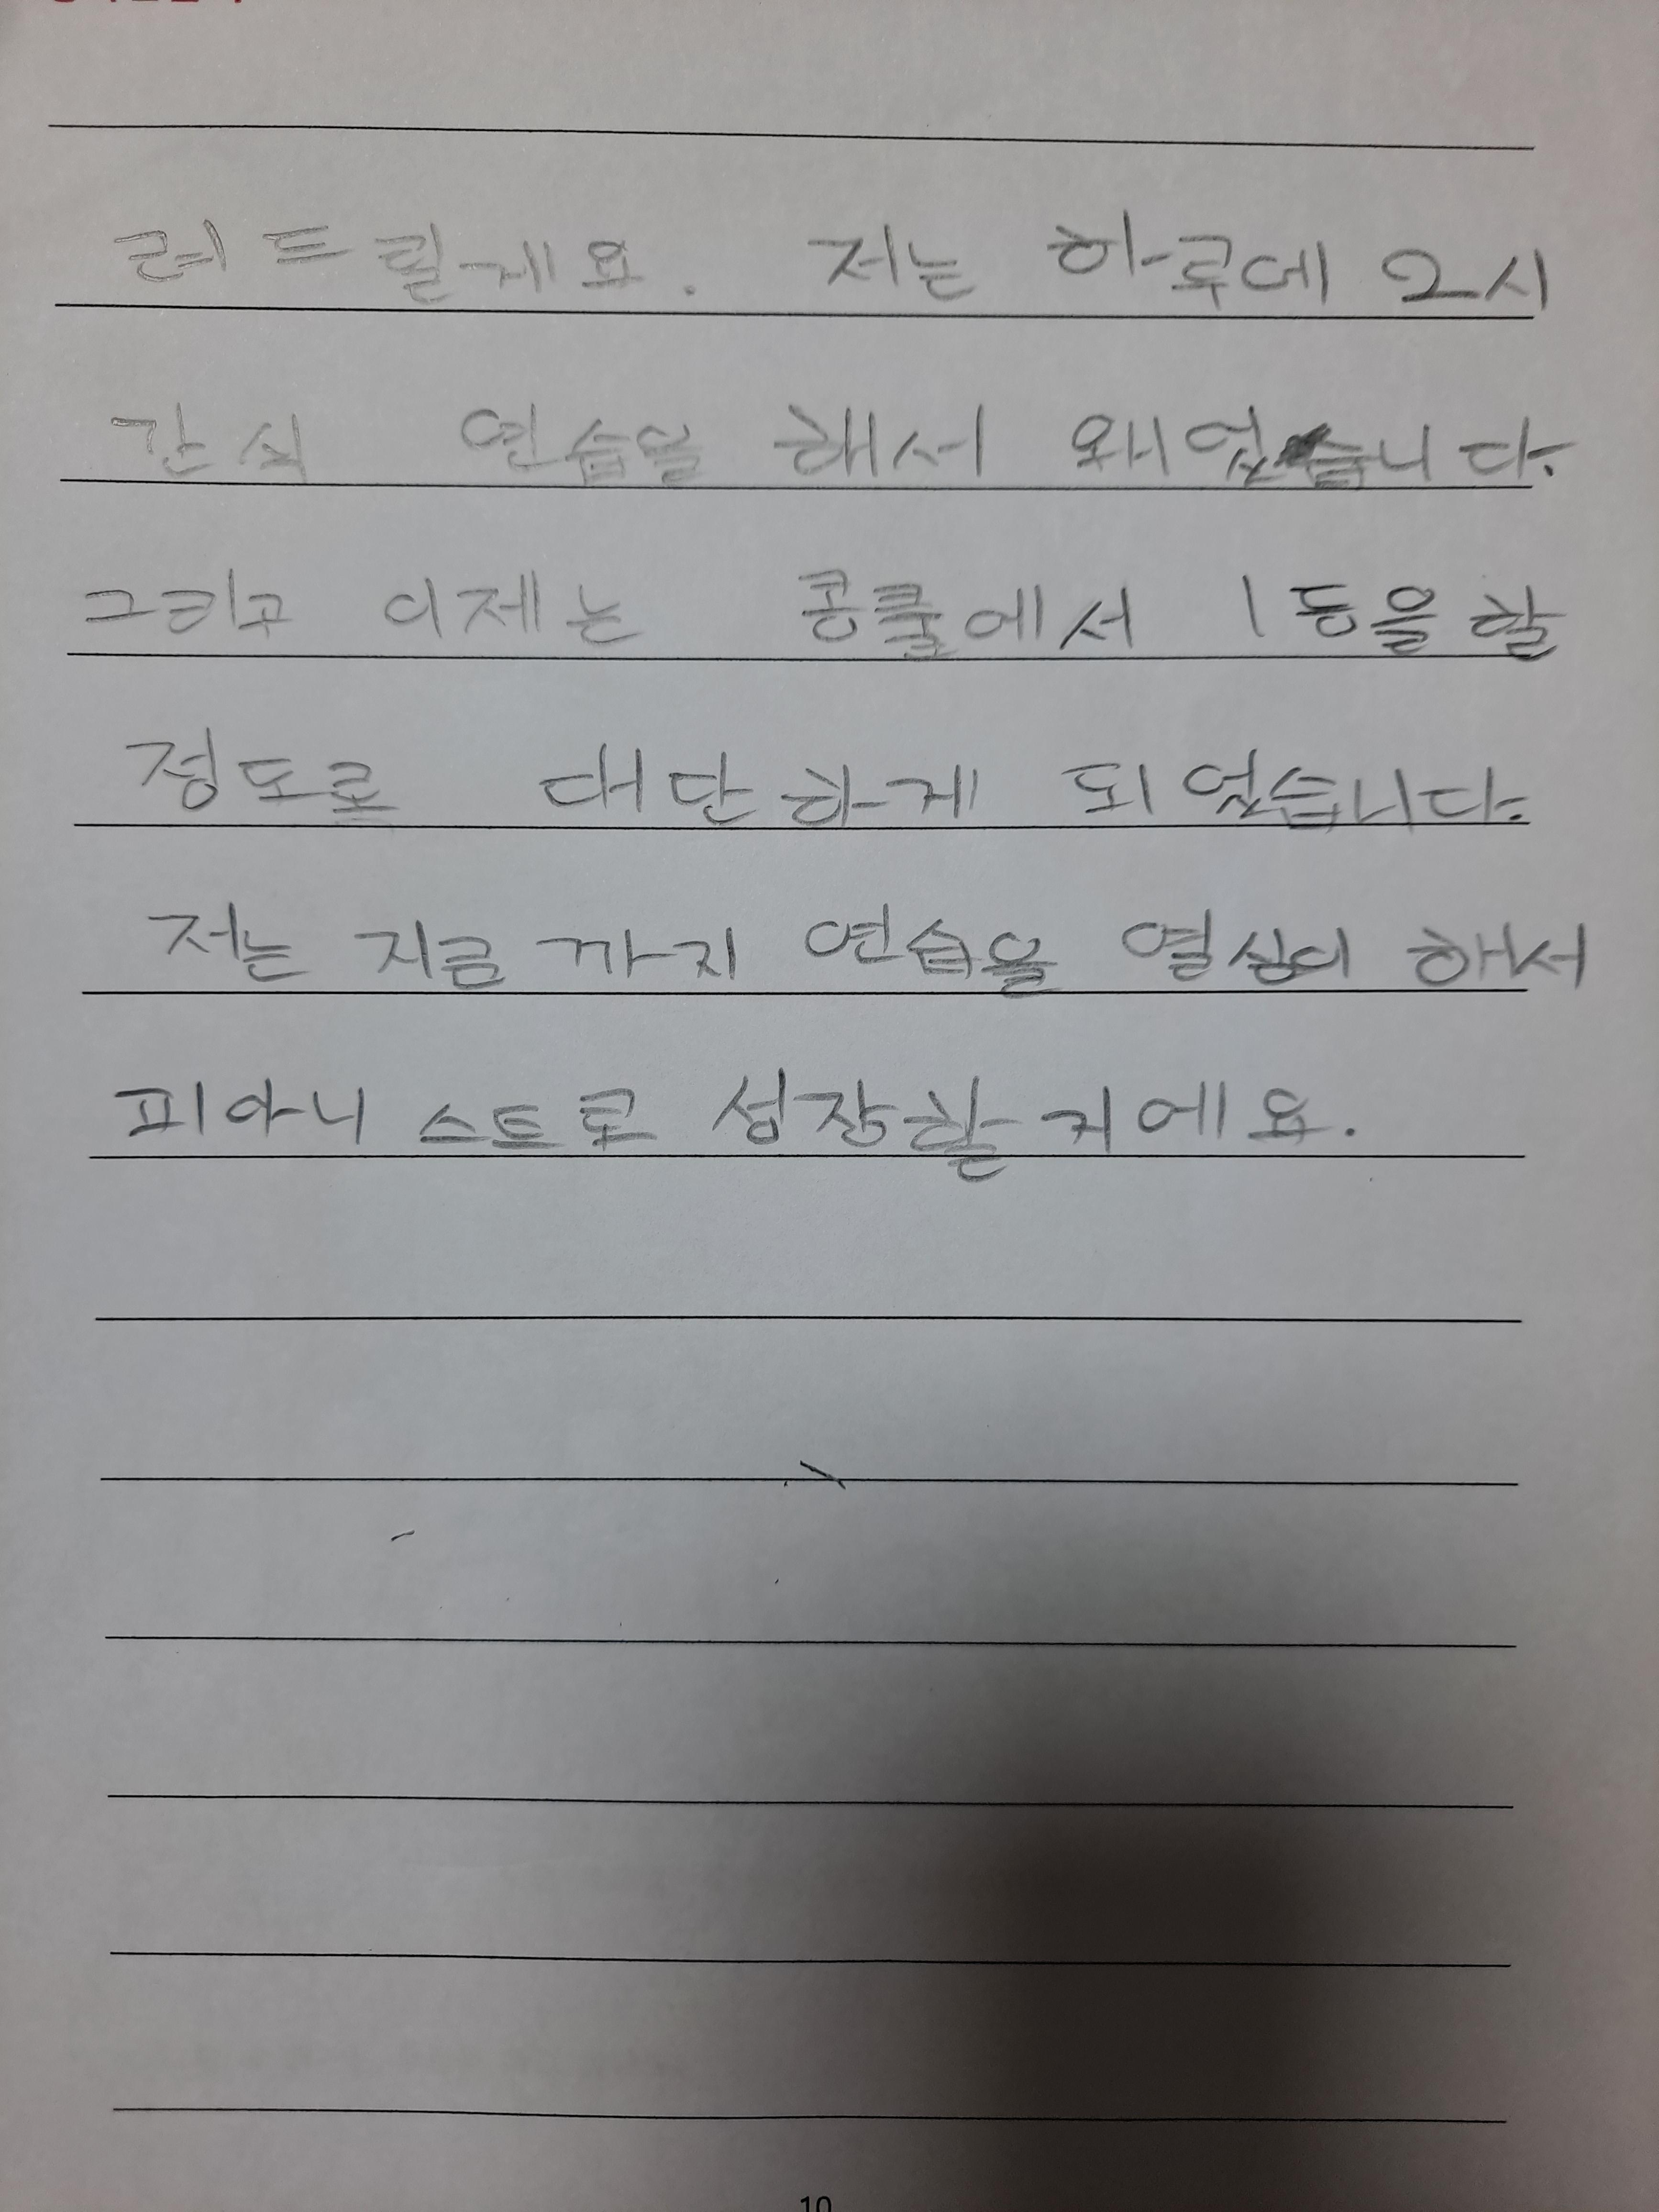 려드릴게요. 저는 하루에 2시
간씩 연습을 해서 왜었습니다.
그리고 이제는 콩쿨에서 1등을 할
정도로 대단하게 되었습니다.
저는 지금 까지 연습을 열심이 해서
피아니스트로 성장할 거에요.
10